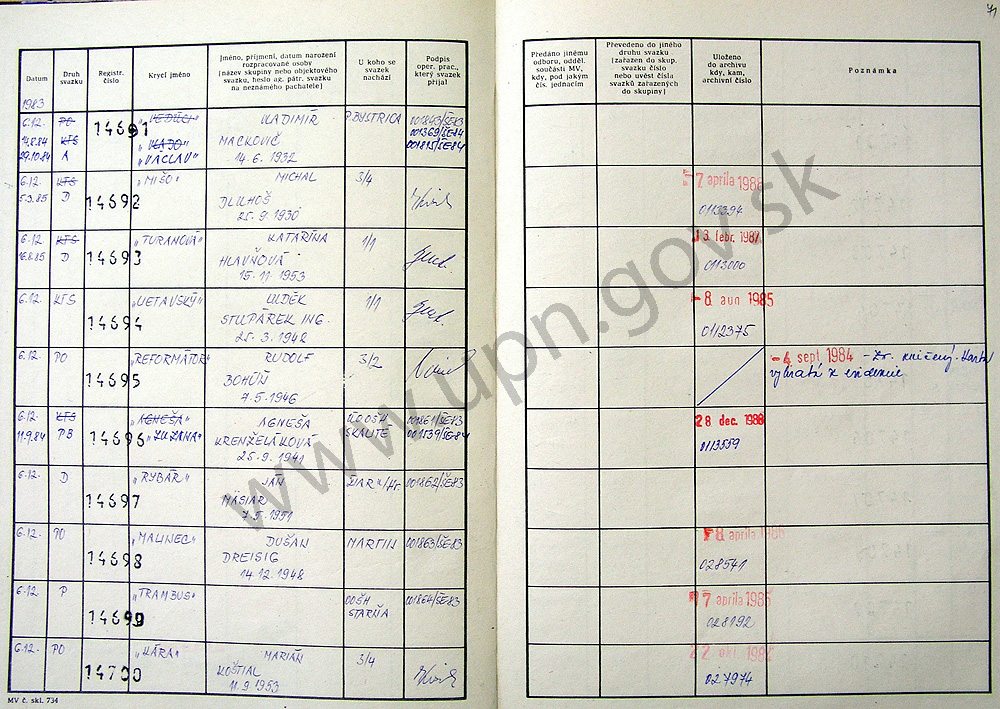 71
Datum
Druh svazku
Registr. číslo
Krycí jméno
Jméno, příjmení, datum narození
rozpracované osoby
[název skupiny nebo objektového
svazku, heslo ag. pátr. svazku
na neznámého pachatele]
U koho se
svazek
nachází
Podpis
oper. prac.,
který svazek
přijal
Předáno jinému
odboru, odděl.
součásti MV,
kdy, pod jakým
čís. jednacím
Převedeno do jiného
druhu svazku
[zařazen do skup.
svazku číslo
nebo uvést čísla
svazků zařazených
do skupiny]
Uloženo
do archivu
kdy, kam,
archivní číslo
Poznámka
1983
6.12. PO 14691 „VEDÚCI“ VLADIMÍR P. BYSTRICA 001843/ŠE-83
14.8.84 KTS „VLADO“ MACKOVIČ 001369/ŠE-84
29.10.84 A „VACLAV“ 14.6.1932 001815/ŠE-84
6.12. KTS „MIŠO“ MICHAL 3/4 7 aprila 1986
5.3.85 D 14692 DLUHOŠ 0113394
25.9.1930
6.12. KTS „TURANOVÁ“ KATARÍNA 1/1 3 febr. 1987
16.8.85 D 14693 HLAVŇOVÁ 0113000
15.11.1953
6.12. KTS „VETAVSKÝ“ LUDĚK 1/1 -8 aun 1985
14694 STUPÁREK ING. 0112375
25.3.1942
6.12. PO „REFORMÁTOR“ RUDOLF 3/2 -4 sept 1984 - Zv. zničený. Karta
14695 BOHÚŇ vybratá z evidencie
7.5.1946
6.12. KTS „AGNEŠA“ AGNEŠA 001861/ŠE-83 28 dec. 1988
11.9.84 PB 14696 „ZUZANA“ KRENŽELÁKOVÁ SKALITÉ 001539/ŠE-84 0113559
25.9.1941
6.12. D „RYBÁR“ JÁN ŽIAR n/Hr. 001862/ŠE-83
14697 MASIAR
7.5.1951
6.12. PO „MALINEC“ DUŠAN MARTIN 001863/ŠE-83 8 aprila 1986
14698 DREISIG 028541
14.12.1948
6.12. P „TRAMBUS“ OOŠH 001864/ŠE-83 17 aprila 1985
14699 STARŇA 028192
6.12. PO „KÁRA“ MARIÁN 3/4 22 okt 1984
14700 KOŠTIAL 027974
11.9.1953
MV č. skl. 734
www.upn.gov.sk